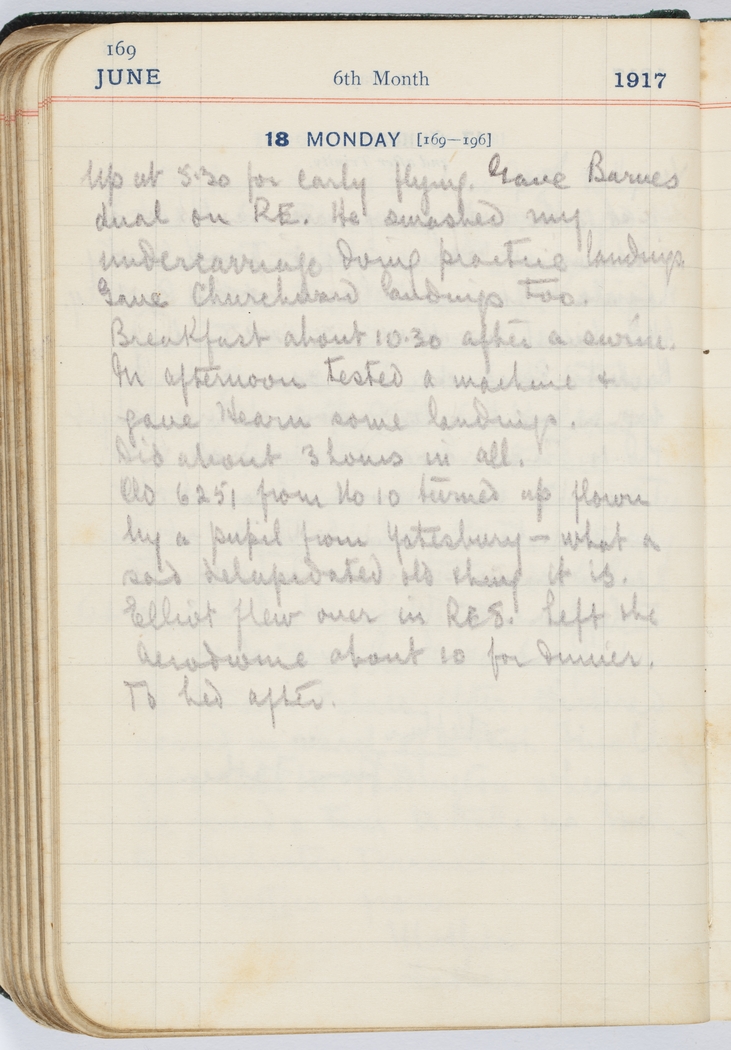 169
JUNE 6th Month 1917
18 MONDAY [169-196]
Up at 5.30 for early flying. Gave Barnes
dual on RE. He smashed my
undercarriage doing practice landings.
Gave Churchward landings too.
Breakfast about 10.30 after a swim.
In afternoon tested a machine &
gave Hearn some landings.
Did about 3 hours in all.
Old 6251 from No 10 turned up flown
by a pupil from Yatesbury – what a
sad delapidated old thing it is.
Elliot flew over in RE8. Left the
Aerodrome about 10 for dinner.
To bed after.